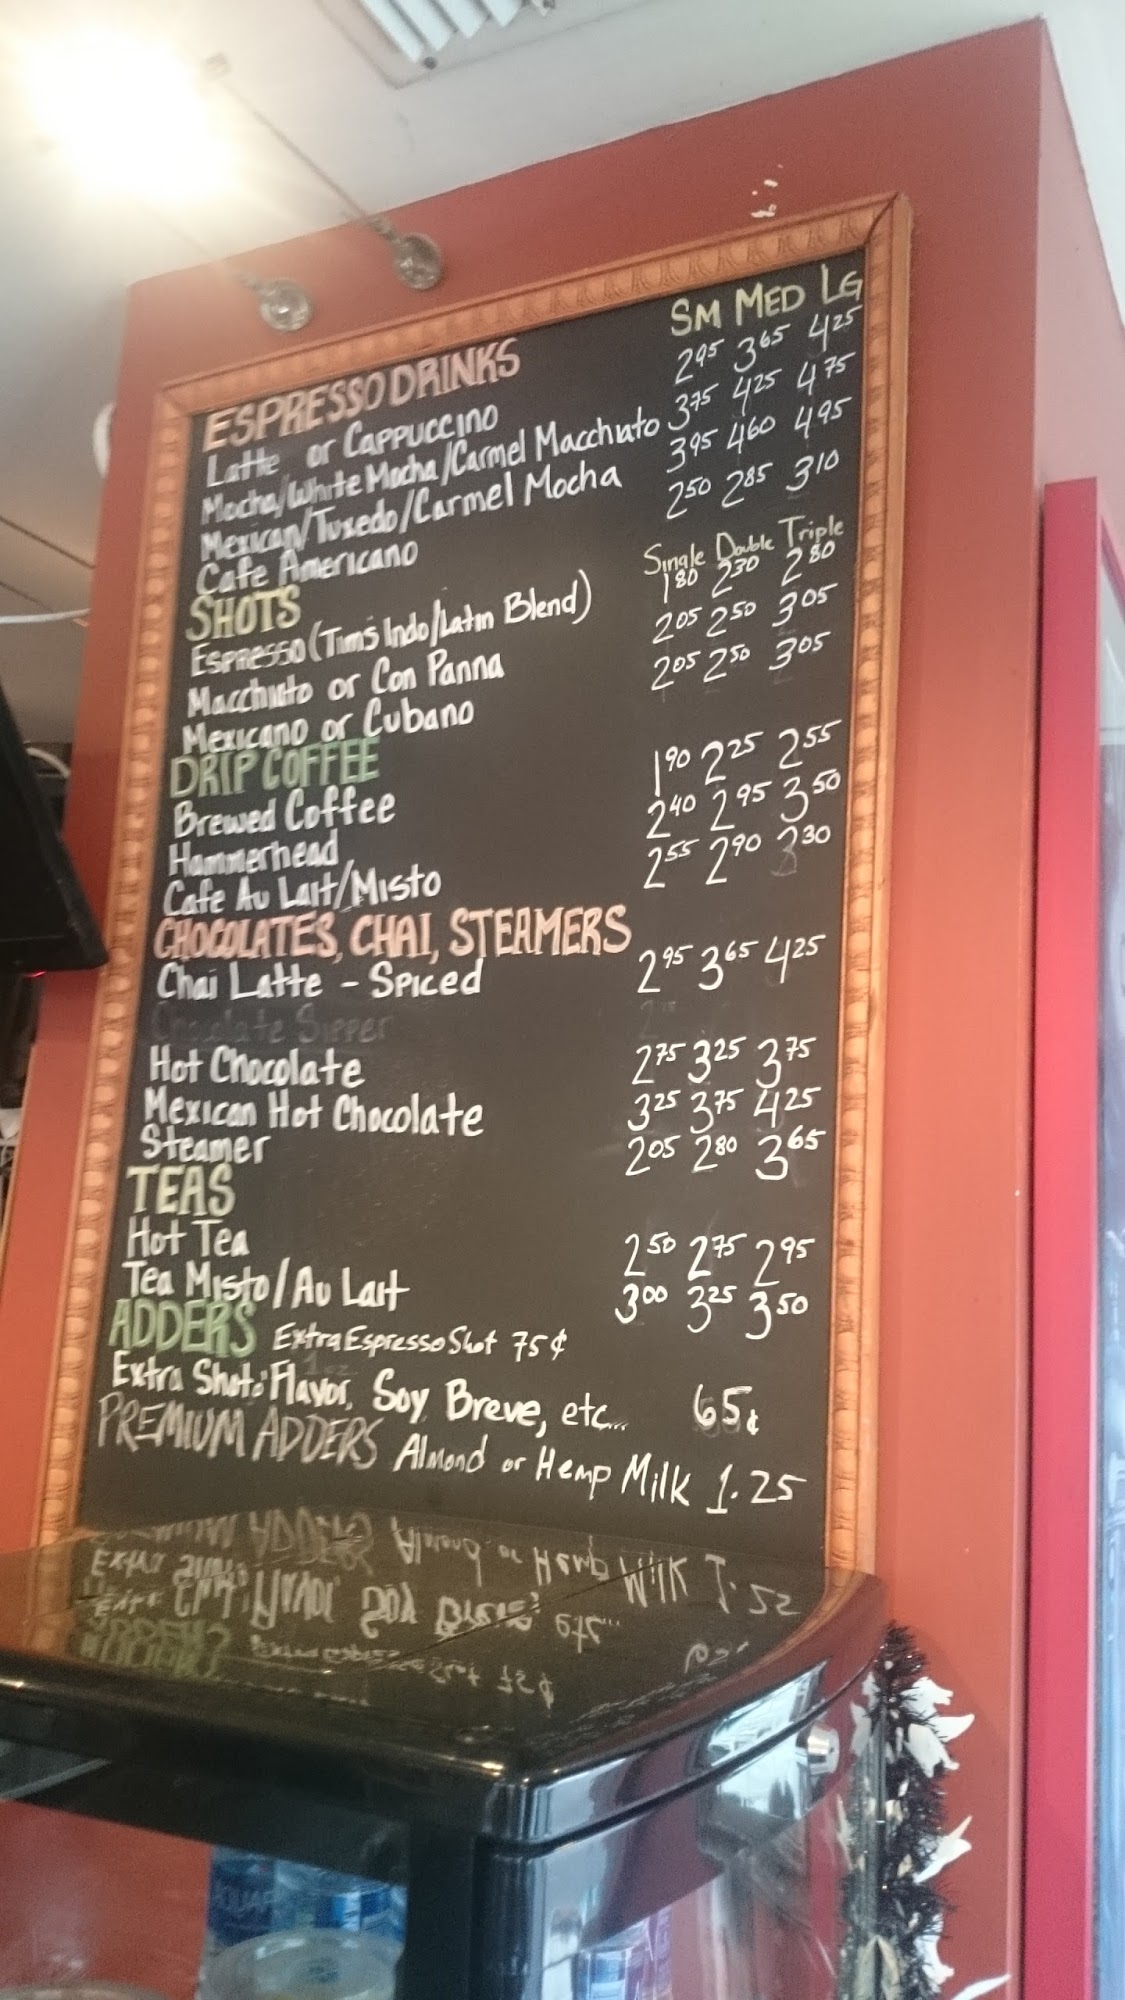 SM MED LG
ESPRESSO DRINKS
Latte or CAPPUCCINO 2.95 3.65 4.25
Mocha/White Mocha/Carmel Macchiato 3.75 4.25 4.75
Mexican/Tuxedo/Carmel Mocha 3.95 4.60 4.95
Cafe Americano 2.50 2.85 3.10
SHOTS Single Double Triple
ESPRESSO (Tim's Indo/Latin Blend) 1.80 2.30 2.80
Macchiato or Con Panna 2.05 2.50 3.05
Mexicano or Cubano 2.05 2.50 3.05
DRIP COFFEE
Brewed Coffee 1.90 2.25 2.55
Hammerhead 2.40 2.95 3.50
Cafe Au Lait/Misto 2.55 2.90 3.30
CHOCOLATES, CHAI, STEAMERS
Chai Latte - Spiced 2.95 3.65 4.25
Chocolate Sipper
Hot Chocolate 2.75 3.25 3.75
Mexican Hot Chocolate 3.25 3.75 4.25
Steamer 2.05 2.80 3.65
TEAS
Hot Tea 2.50 2.75 2.95
Tea Misto/Au Lait 3.00 3.25 3.50
ADDERS Extra Espresso Shot 75¢
Extra Shot: Flavor, Soy Breve, etc... 65¢
PREMIUM ADDERS Almond or Hemp Milk 1.25